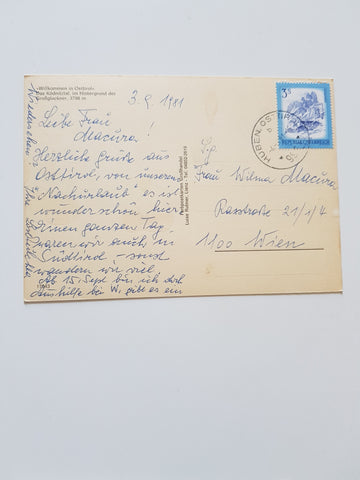 «Willkommen in Osttirol»
Das Ködnitztal, im Hintergrund der
Großglockner, 3798 m
3.9.1981
Liebe Frau
Macura!
Herzliche Grüße aus
Osttirol, von unserem
"Nachurlaub" es ist
wunderschön hier
Einen ganzen Tag
waren wir auch in
Südtirol - sonst
wandern wir viel
Ab 15. Sept bin ich doch
Aushilfe bei W. gibt es ein
Wiedersehen
Luise Rubner, Lienz - Tel. 04852-2919
S.g.
Frau Wilma Macura
Rasstraße 21/1/4
1100 Wien
3 S
REPUBLIK ÖSTERREICH
HUBEN, OSTTIROL